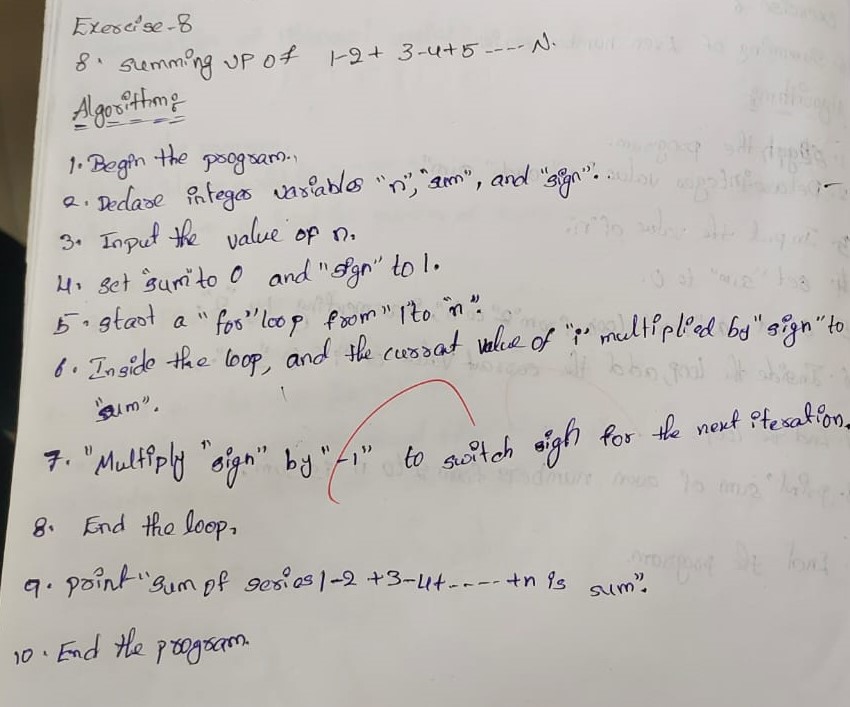 Exercise-8
8. summing up of 1-2+ 3-4+5 ---- N.
Algorithm:
1. Begin the program.
2. Declare integer variables "n", "sum", and "sign".
3. Input the value of n.
4. set "sum" to 0 and "sign" to 1.
5. start a "for" loop from "1 to "n".
6. Inside the loop, and the current value of "i" multiplied by "sign" to
"sum".
7. "Multiply "sign" by "-1" to switch sigh for the next iteration.
8. End the loop.
9. print "Sum of series 1-2 +3-4+----- +n is sum".
10. End the program.